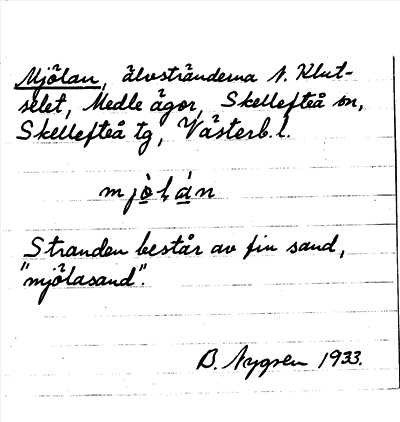 Mjölan, älvstränderna N. Klut-
selet, Medle ägor, Skellefteå sn,
Skellefteå tg, Västerb. l.
mjòlán
Stranden består av fin sand,
"mjölasand".
B. Nygren 1933.